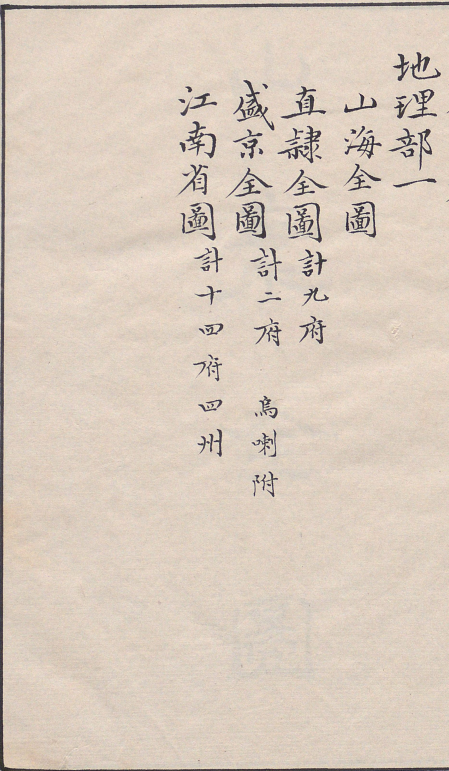 地理部一
山海全圖
直隸全圖計九府
盛京全圖計二府 烏喇附
江南省圖計十四府四州